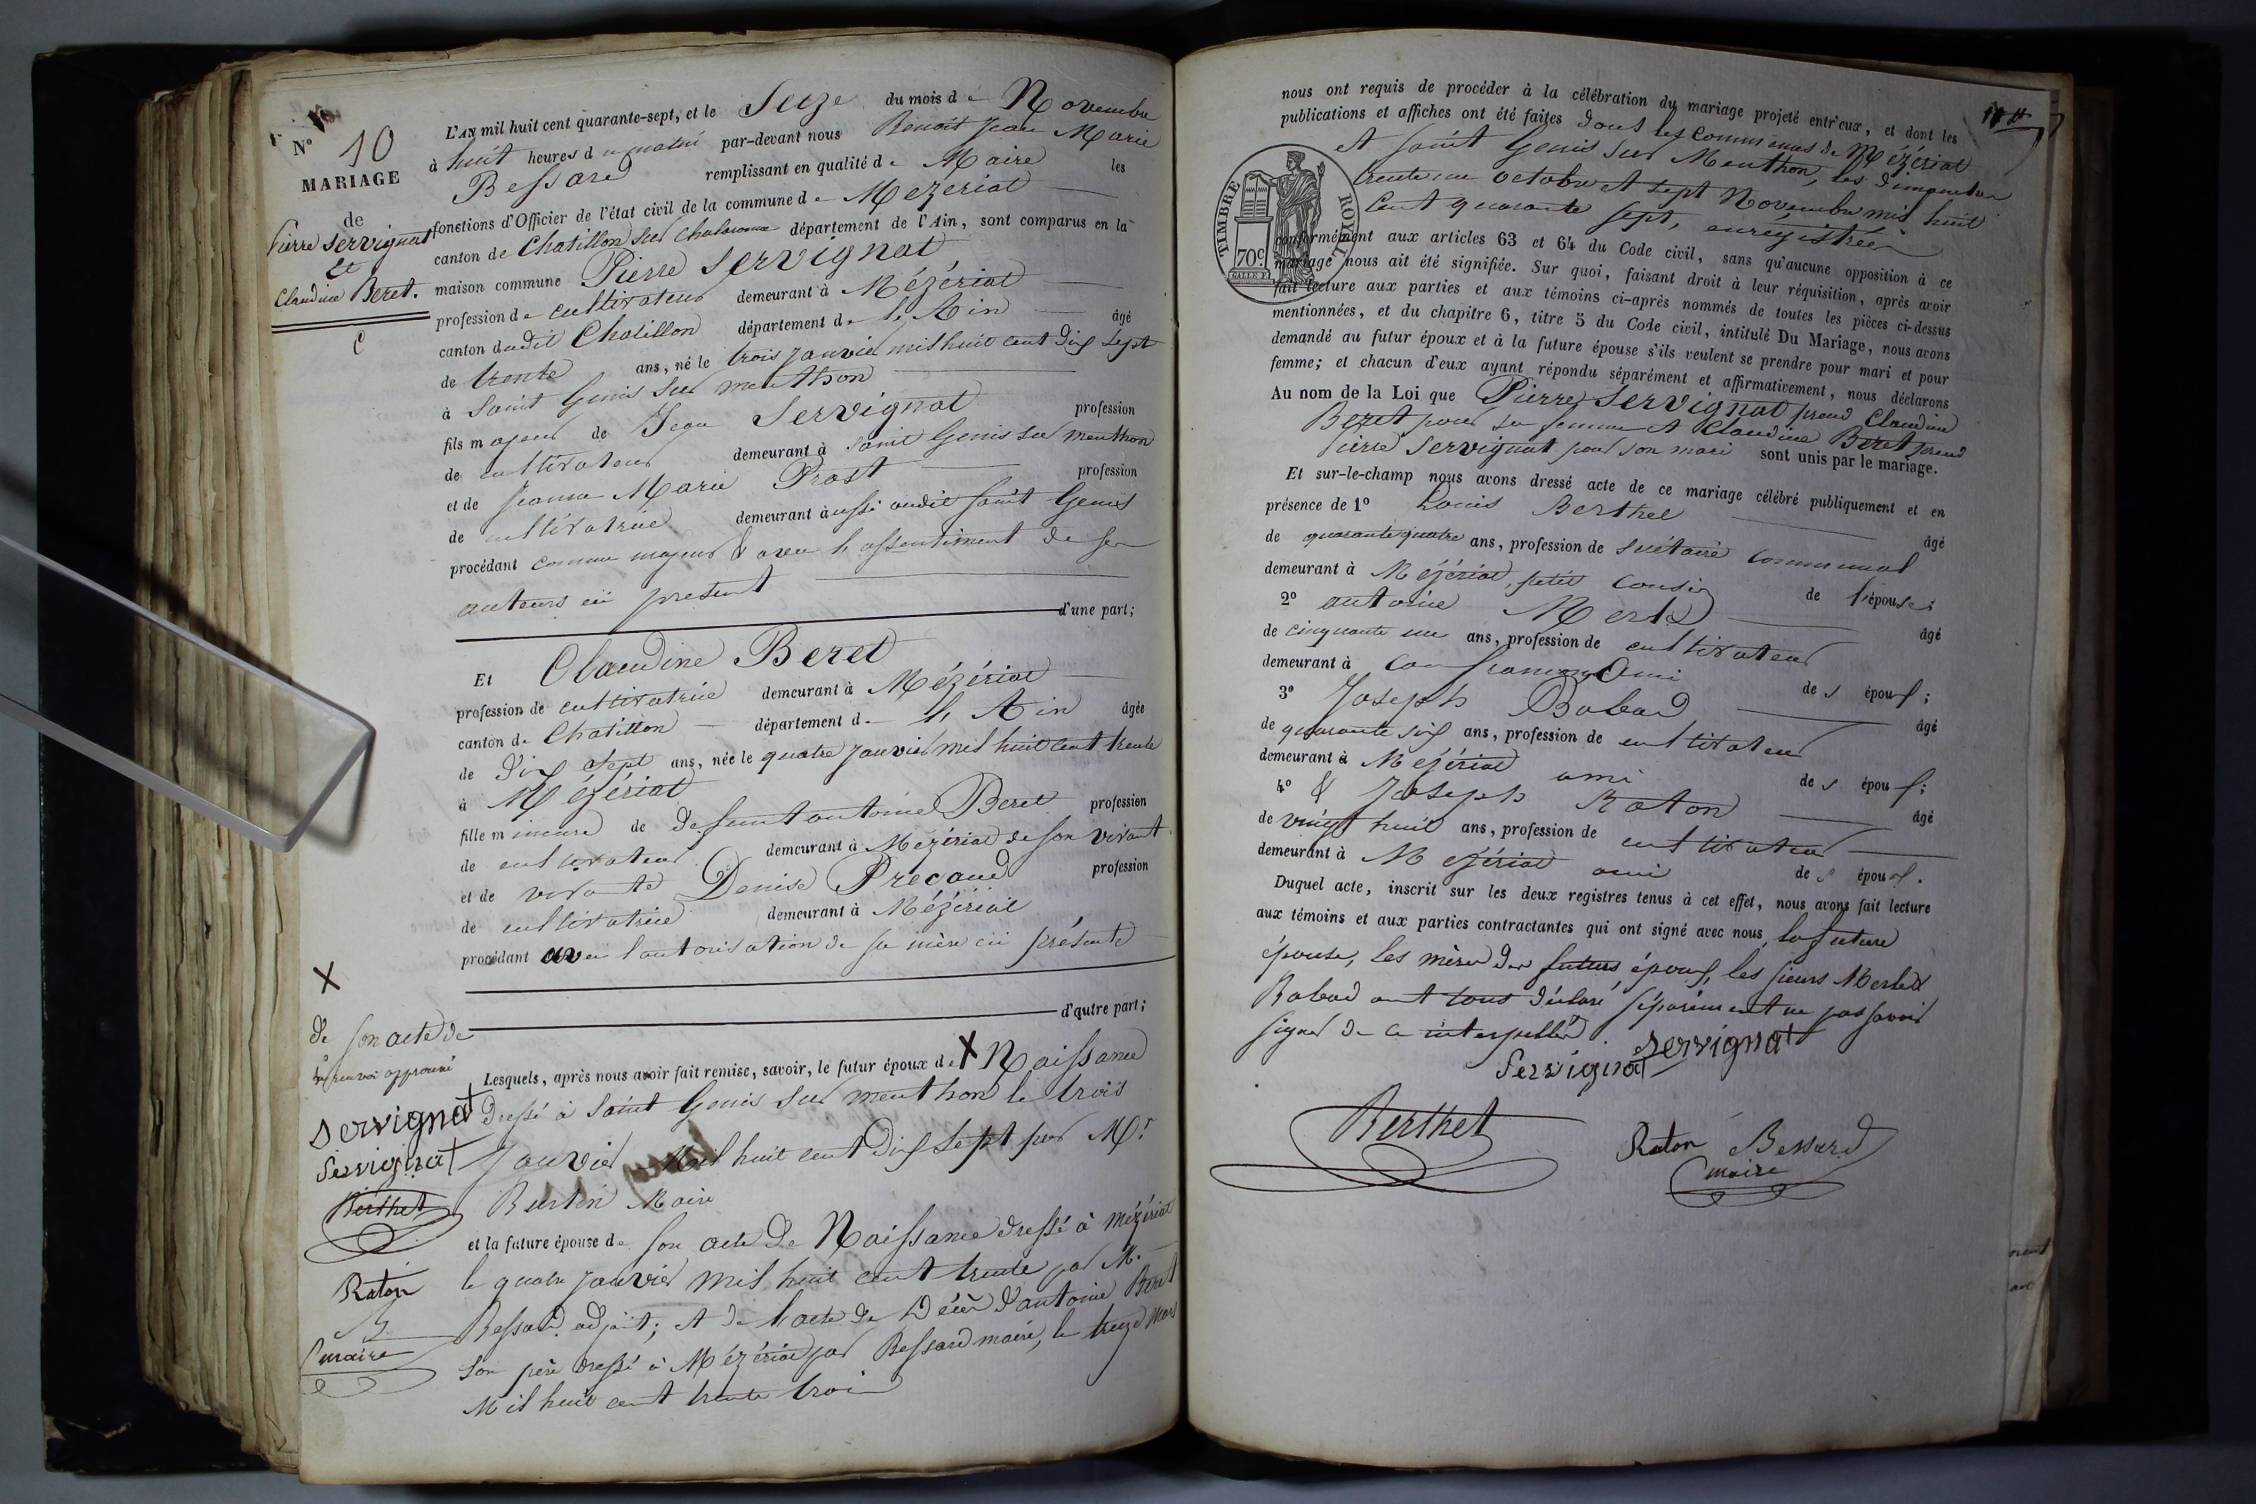 N° 10
MARIAGE
de
Pierre Servignat
et
Claudine Beret.
L'AN mil huit cent quarante-sept, et le Seize du mois de Novembre
à huit heures du matin par-devant nous Benoit Jean Marie
Bessard remplissant en qualité de Maire les
fonctions d'Officier de l'état civil de la commune de Mézériat
canton de Chatillon sur Chalaronne département de l'Ain, sont comparus en la
maison commune Pierre Servignat
profession de cultivateur demeurant à Mézériat
canton dudit Chatillon département de l'Ain âgé
de trente ans, né le trois janvier mil huit cent dix sept
à Saint Genis sur menthon
fils majeur de Jean Servignat profession
de cultivateur demeurant à Saint Genis sur menthon
et de Jeanne Marie Prost profession
de cultivatrice demeurant à aussi audit Saint Genis
procédant comme majeur & avec l'assentiment de ses
auteurs ici présent
d'une part;
Et Claudine Beret
profession de cultivatrice demeurant à Mézériat
canton de Chatillon département de l'Ain âgée
de dix sept ans, née le quatre janvier mil huit cent trente
à Mézériat
fille mineure de defunt antoine Beret profession
de cultivateur demeurant à Mézériat de son vivant
et de vivante Denise Precaud profession
de cultivatrice demeurant à Mézériat
procédant avec l'autorisation de sa mère ici présente
d'autre part;
X
de son acte de
renvoi approuvé
Servignat
Servignat
Berthet
Raton
B
maire
Lesquels, après nous avoir fait remise, savoir, le futur époux de X Naissance
dressé à Saint Genis sur menthon le trois
Janvier Mil huit cent dix sept par Mr.
Burtin Maire
et la future épouse de son acte de Naissance dressé à Mézériat
le quatre janvier mil huit cent trente par M.
Bessard adjoint; et de l'acte de Décès d'antoine Beret
son père dressé à Mézériat par Bessard maire, le treize Mars
Mil huit cent trente trois
nous ont requis de procéder à la célébration du mariage projeté entr'eux, et dont les
publications et affiches ont été faites dans les communes de Mézériat
et Saint Genis sur Menthon, les dimanches
trente un octobre et sept Novembre mil huit
cent quarante sept, enrégistrées
TIMBRE ROYAL
70c
conformément aux articles 63 et 64 du Code civil, sans qu'aucune opposition à ce
mariage nous ait été signifiée. Sur quoi, faisant droit à leur réquisition, après avoir
fait lecture aux parties et aux témoins ci-après nommés de toutes les pièces ci-dessus
mentionnées, et du chapitre 6, titre 5 du Code civil, intitulé Du Mariage, nous avons
demandé au futur époux et à la future épouse s'ils veulent se prendre pour mari et pour
femme; et chacun d'eux ayant répondu séparément et affirmativement, nous déclarons
Au nom de la Loi que Pierre Servignat prend Claudine
Beret pour sa femme et Claudine Beret prend
Pierre Servignat pour son mari sont unis par le mariage.
Et sur-le-champ nous avons dressé acte de ce mariage célébré publiquement et en
présence de 1° Louis Berthet âgé
de quarante quatre ans, profession de secrétaire communal
demeurant à Mézériat, petit cousin de l'épouse;
2° antoine Merle âgé
de cinquante un ans, profession de cultivateur
demeurant à Confrançon ami de s époux;
3° Joseph Bobad âgé
de quarante six ans, profession de cultivateur
demeurant à Mézériat ami de s époux;
4° & Joseph Raton âgé
de vingt huit ans, profession de cultivateur
demeurant à Mézériat ami de s époux.
Duquel acte, inscrit sur les deux registres tenus à cet effet, nous avons fait lecture
aux témoins et aux parties contractantes qui ont signé avec nous, la future
épouse, les mères des futurs époux, les sieurs Merle &
Bobad ont tous déclaré séparément ne pas savoir
signer de ce interpellés.
Servignat Servignat
Berthet
Raton Bessard
maire